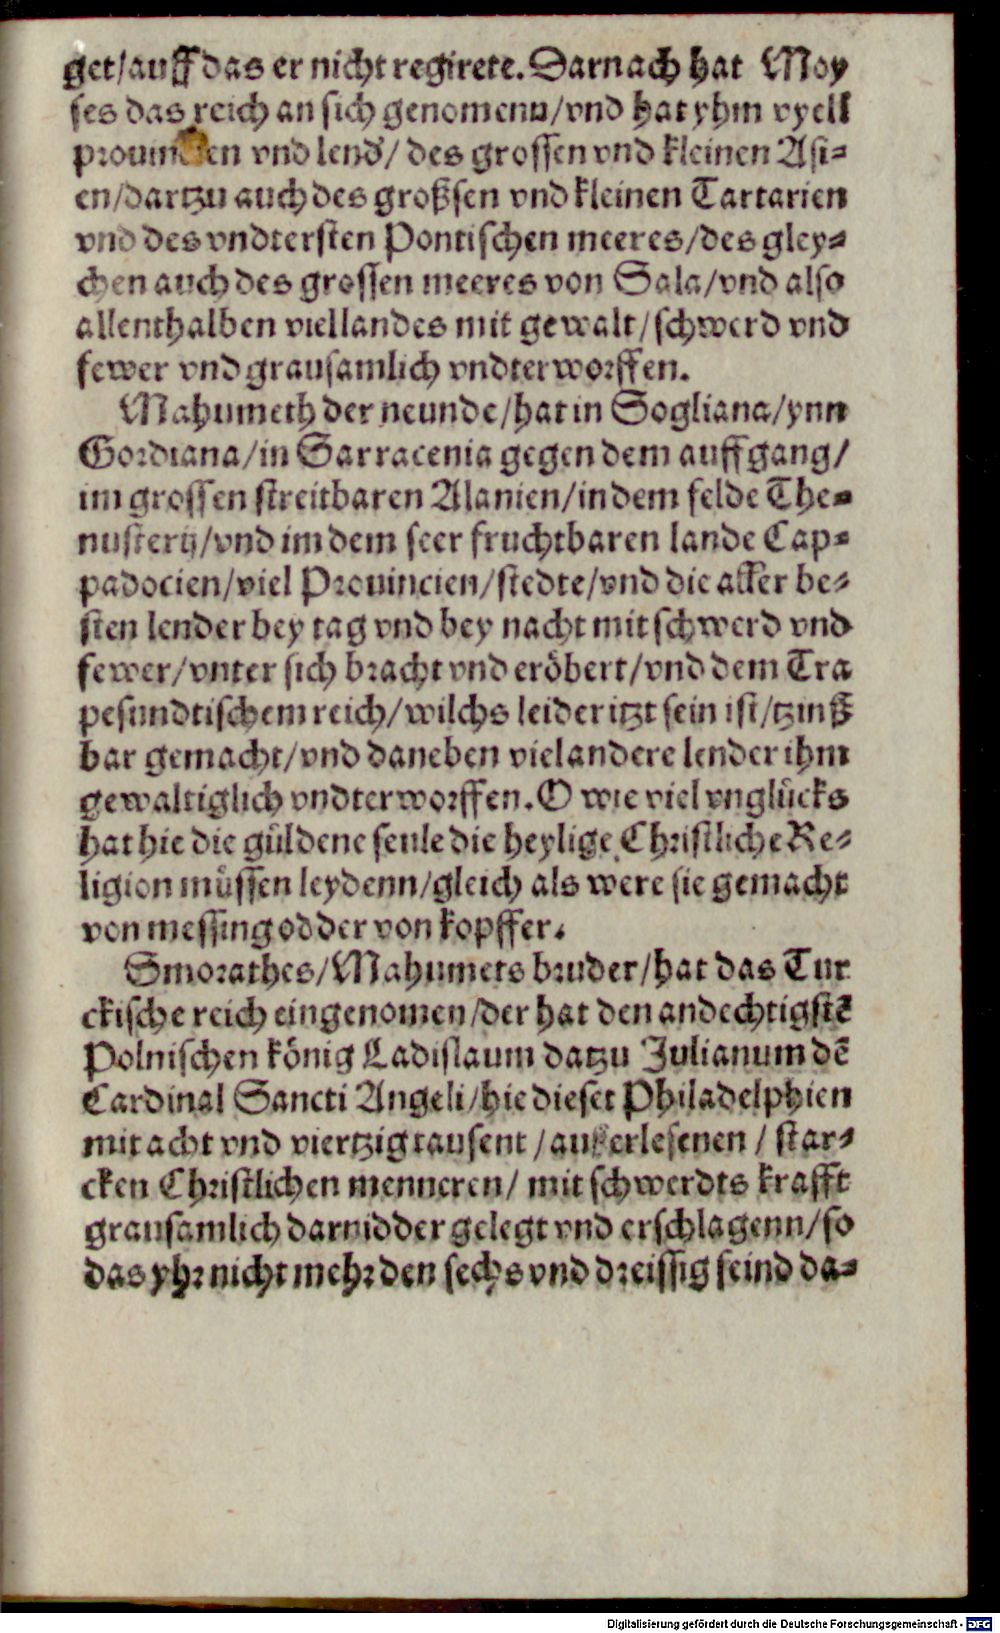 get/auff das er nicht regirete. Darnach hat Moy
ses das reich an sich genomenn/vnd hat yhm vyell
vnd lend/ des grossen vnd kleinen Asi-
en/dartzu auch des großsen vnd kleinen Tartarien
vnd des vndtersten Pontischen meeres/des gley-
chen auch des grossen meeres von Sala/vnd also
allenthalben viel landes mit gewalt/schwerd vnd
fewer vnd grausamlich vndterworffen.
Mahumeth der neunde/hat in Sogliana/ynn
Gordiana/in Sarracenia gegen dem auffgang/
im grossen streitbaren Alanien/in dem felde The-
nusterij/vnd im dem seer fruchtbaren lande Cap-
padocien/viel Prouincien/stedte/vnd die aller be-
sten lender bey tag vnd bey nacht mit schwerd vnd
fewer/vnter sich bracht vnd eröbert/vnd dem Tra
pesundtischem reich/wilchs leider itzt sein ist/tzinß
bar gemacht/vnd daneben viel andere lender ihm
gewaltiglich vndterworffen. O wie viel vnglücks
hat hie die güldene seule die heylige Christliche Re-
ligion müssen leydenn/gleich als were sie gemacht
von messing odder von kopffer.
Smorathes/Mahumets bruder/hat das Tur
ckische reich eingenomen/der hat den andechtigstē
Polnischen könig Ladislaum datzu Julianum dē
Cardinal Sancti Angeli/hie dieset Philadelphien
mit acht vnd viertzig tausent/außerlesenen/ star-
cken Christlichen menneren/ mit schwerdts krafft
grausamlich darnidder gelegt vnd erschlagenn/so
das yhr nicht mehr den sechs vnd dreissig seind da-
Digitalisierung gefördert durch die Deutsche Forschungsgemeinschaft - DFG